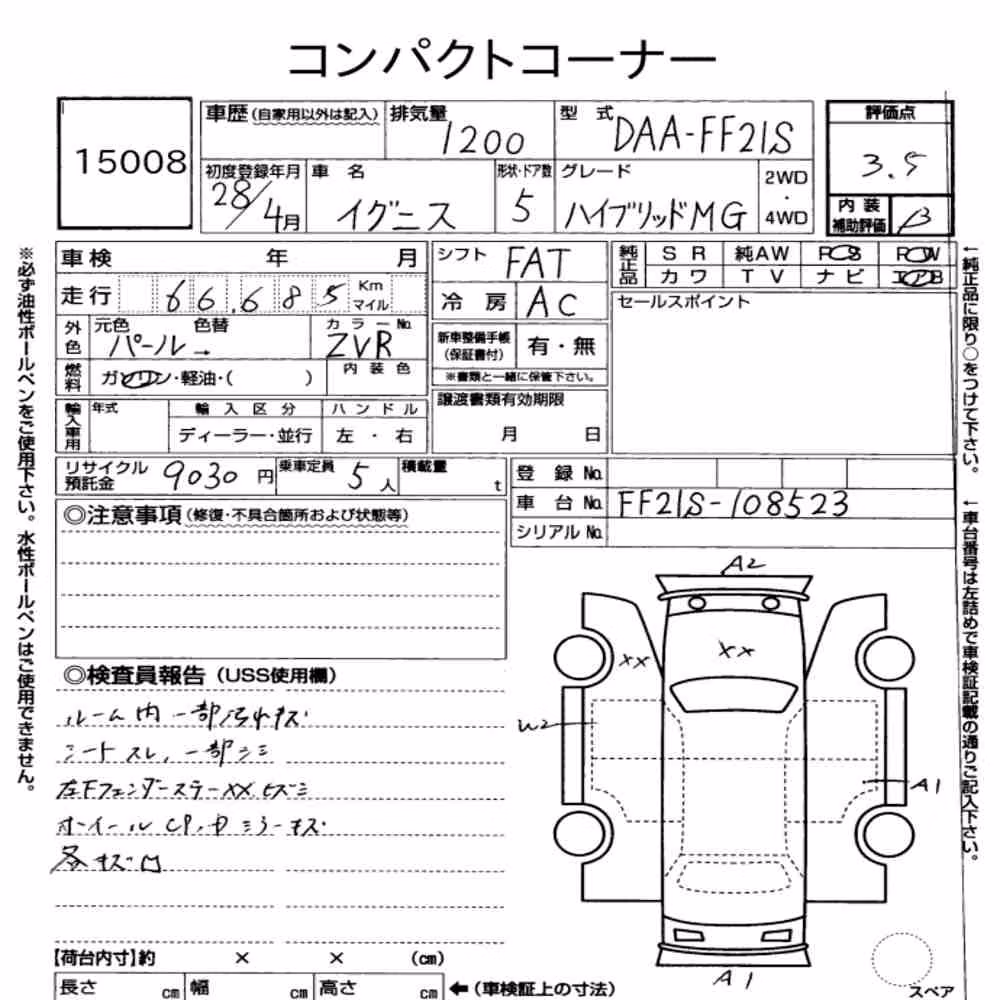 コンパクトコーナー
15008
車歴 (自家用以外は記入) 排気量 1200 型式 DAA-FF21S
初度登録年月 28/4月 車名 イグニス 形状・ドア数 5 グレード ハイブリッドMG 2WD・4WD
評価点 3.5
内装補助評価 B
車検 年 月
走行 66,685 Km マイル
外色 元色 パール 色替 → カラーNo. ZVR
燃料 ガソリン・軽油・( ) 内装色
輸入車用 年式 輸入区分 ディーラー・並行 ハンドル 左・右
シフト FAT
冷房 AC
新車整備手帳(保証書付) 有・無
※書類と一緒に保管下さい。
譲渡書類有効期限
月 日
純正品 SR 純AW PS PW
カワ TV ナビ エアB
セールスポイント
リサイクル預託金 9030 円 乗車定員 5 人 積載量 t
登録No.
車台No. FF21S-108523
シリアルNo.
◎注意事項 (修復・不具合箇所および状態等)
◎検査員報告 (USS使用欄)
ルーム内一部汚れキズ
シートスレ、一部シミ
左Fフェンダーステー XX、ヒズミ
ホイールCP、ドミラーキズ
各キズ凹
A2
XX
XX
W2
A1
A1
スペア
【荷台内寸】約 × × (cm)
長さ cm 幅 cm 高さ cm ←(車検証上の寸法)
※必ず油性ボールペンをご使用下さい。水性ボールペンはご使用できません。
←純正品に限り○をつけて下さい。
←車台番号は左詰めで車検証記載の通りご記入下さい。